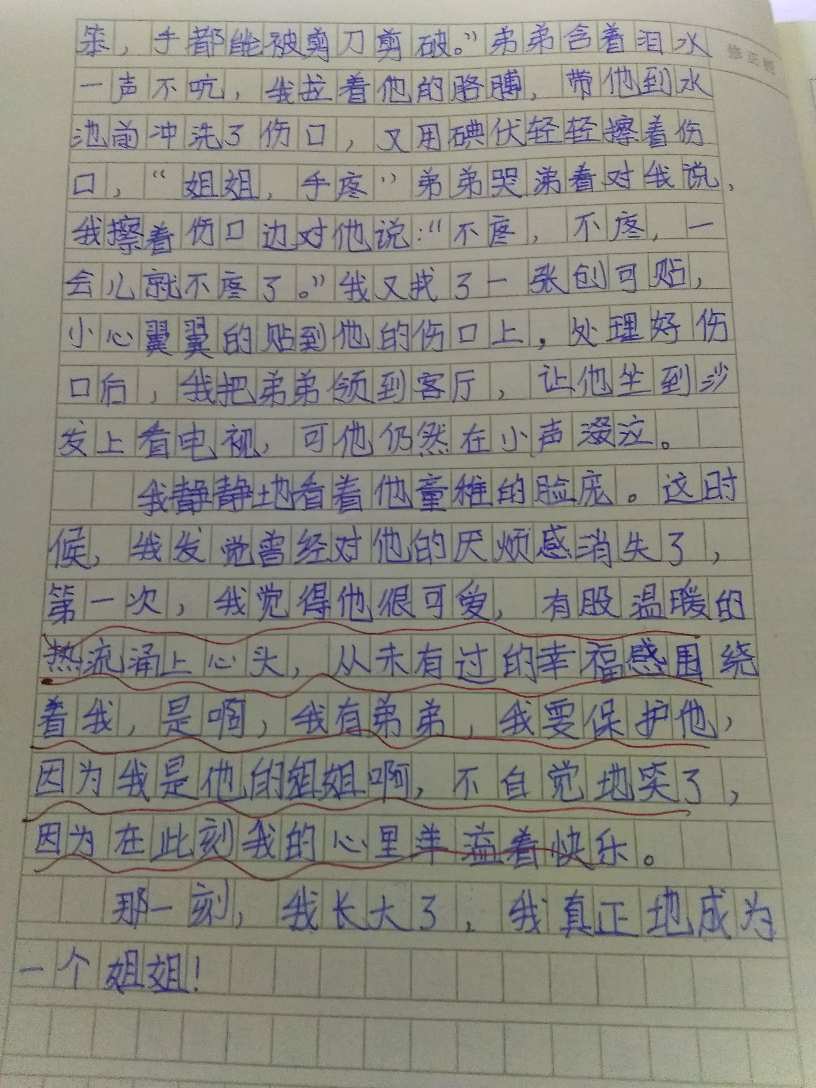 笨，手都能被剪刀剪破。”弟弟含着泪水
一声不吭，我拉着他的胳膊，带他到水
池前冲洗了伤口，又用碘伏轻轻擦着伤
口，“姐姐，手疼”弟弟哭涕着对我说，
我擦着伤口边对他说：“不疼，不疼，一
会儿就不疼了。”我又找了一张创可贴，
小心翼翼的贴到他的伤口上，处理好伤
口后，我把弟弟领到客厅，让他坐到沙
发上看电视，可他仍然在小声泣。
我静静地看着他童稚的脸庞。这时
候，我发觉曾经对他的厌烦感消失了，
第一次，我觉得他很可爱，有股温暖的
热流涌上心头，从未有过的幸福感围绕
着我，是啊，我有弟弟，我要保护他，
因为我是他的姐姐啊，不自觉地笑了，
因为在此刻我的心里洋溢着快乐。
那一刻，我长大了，我真正地成为
一个姐姐！